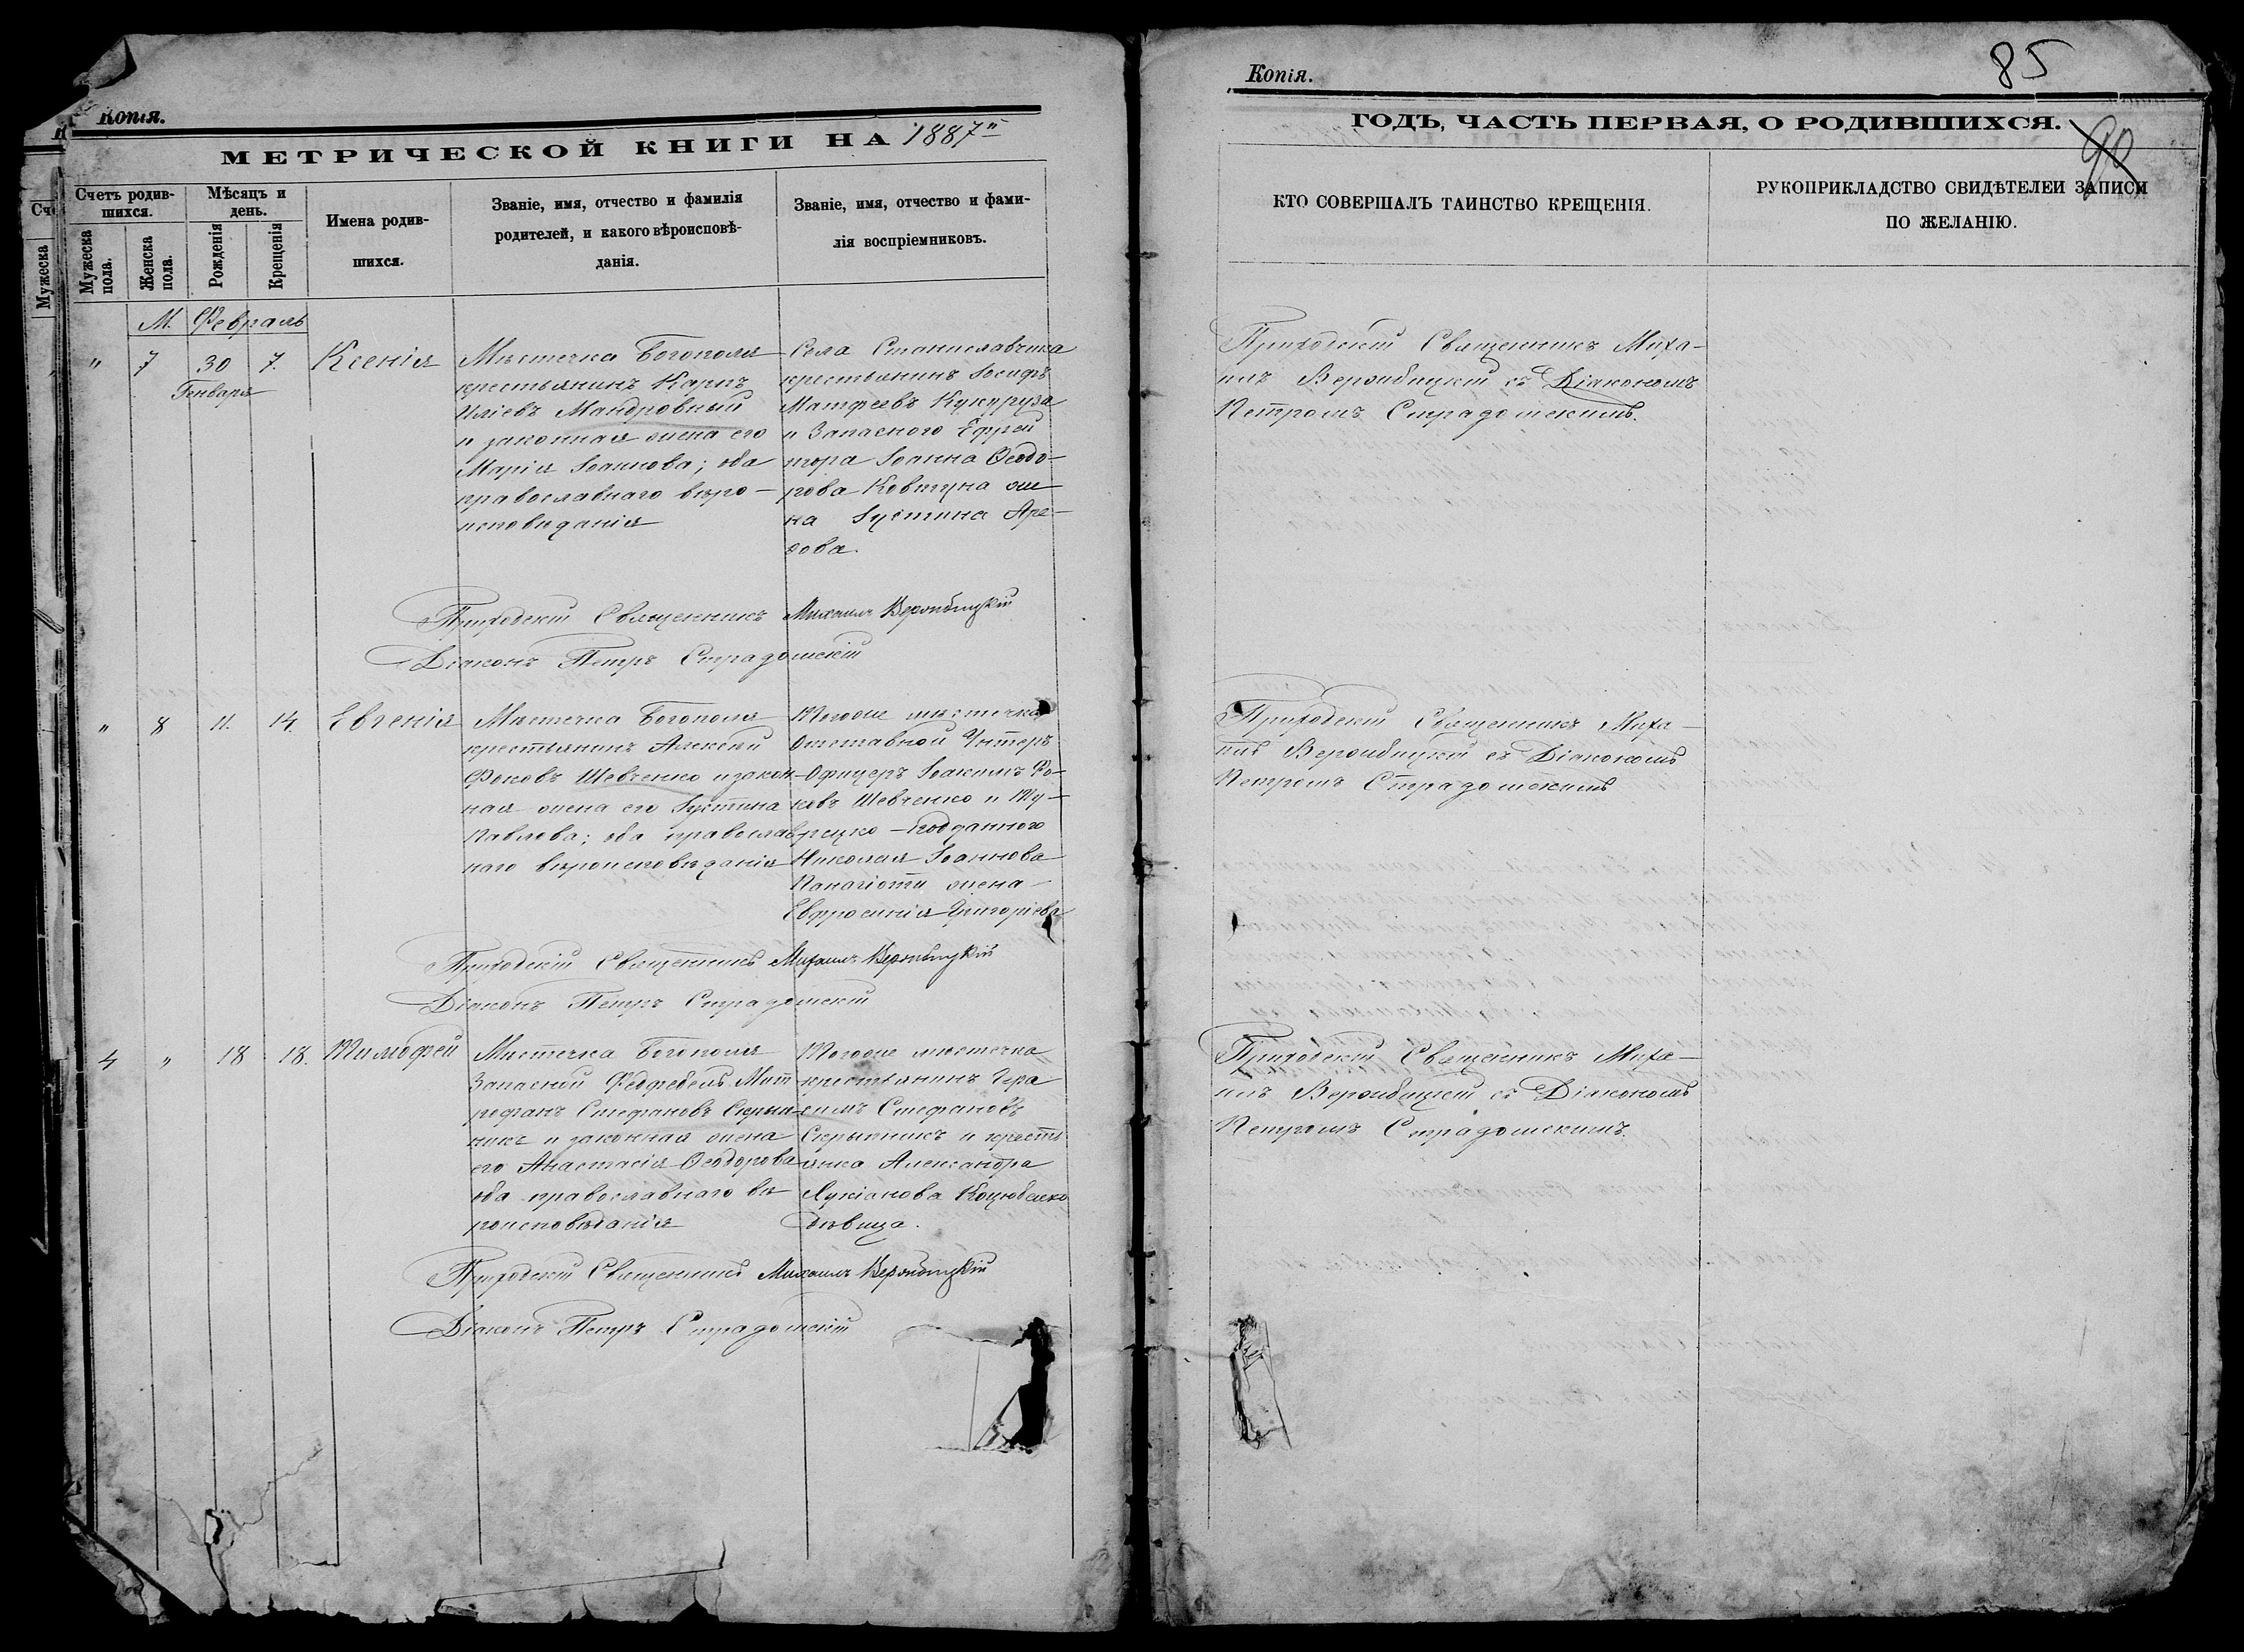 Копія.
МЕТРИЧЕСКОЙ КНИГИ НА 1887й
Счетъ родив-
шихся.
Мужеска
пола.
Женска
пола.
Мѣсяцъ и
день.
Рожденія
Крещенія
Имена родив-
шихся.
Званіе, имя, отчество и фамилія
родителей, и какого вѣроисповѣ-
данія.
Званіе, имя, отчество и фами-
лія воспріемниковъ.
М. Февраль
" 7 30 7. Ксенія
Генваря
Мѣстечка Богополя
крестьянинъ Карпъ
Иліевъ Мандровный
и законная жена его
Марія Іоаннова; оба
православнаго вѣро-
исповѣданія
Села Станиславчика
крестьянинъ Іосифъ
Матфеевъ Кукуруза
и Запасного Ефрей
тора Іоанна Ѳеодо-
рова Ковтуна же
на Іустина Аре-
ѳова.
Приходскій Священникъ Михаилъ Вержбицкій
Діаконъ Петръ Страдомскій
" 8 11. 14. Евгенія
Мѣстечка Богополя
крестьянинъ Алексій
Фоковъ Шевченко и закон-
ная жена его Іустина
Павлова; оба православ
наго вѣроисповѣданія
Тогоже мѣстечка
Отставной Унтеръ
Офицеръ Іоакимъ Фо-
ковъ Шевченко и Ту-
рецко-подданного
Николая Іоаннова
Панагіоти жена
Евфросинія Григоріева
Приходскій Священникъ Михаилъ Вержбицкій
Діаконъ Петръ Страдомскій
4 " 18 18. Тимофей
Мѣстечка Богополя
Запасный Фельдфебель Мит
рофанъ Стефановъ Скрып-
никъ и законная жена
его Анастасія Ѳеодорова
оба православнаго вѣ
роисповѣданія
Тогоже мѣстечка
крестьянинъ Гера
симъ Стефановъ
Скрыпникъ и кресть
янка Александра
Лукіанова
дѣвица.
Приходскій Священникъ Михаилъ Вержбицкій
Діаконъ Петръ Страдомскій
Копія.
85
ГОДЪ, ЧАСТЬ ПЕРВАЯ, О РОДИВШИХСЯ.
90
КТО СОВЕРШАЛЪ ТАИНСТВО КРЕЩЕНІЯ.
РУКОПРИКЛАДСТВО СВИДѢТЕЛЕЙ ЗАПИСИ
ПО ЖЕЛАНІЮ.
Приходскій Священникъ Миха-
илъ Вержбицкій съ Діакономъ
Петромъ Страдомскимъ.
Приходскій Священникъ Миха-
илъ Вержбицкій съ Діакономъ
Петромъ Страдомскимъ
Приходскій Священникъ Миха-
илъ Вержбицкій съ Діакономъ
Петромъ Страдомскимъ.